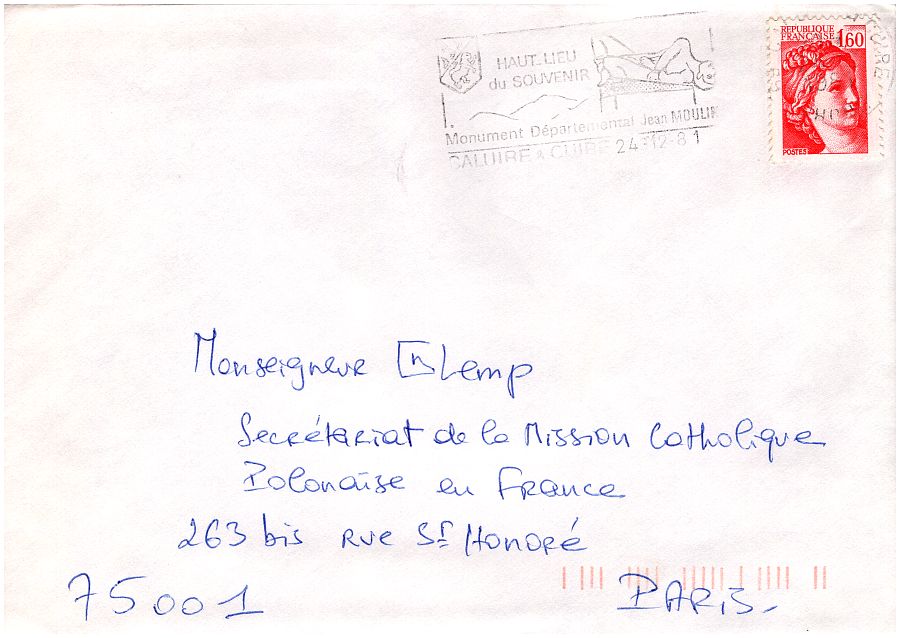 HAUT LIEU
du SOUVENIR
Monument Départemental Jean MOULIN
CALUIRE & CUIRE 24-12-81
REPUBLIQUE
FRANÇAISE 1,60
POSTES
Monseigneur Lemp
Secrétariat de la Mission Catholique
Polonaise en France
263 bis rue St Honoré
75001 PARIS